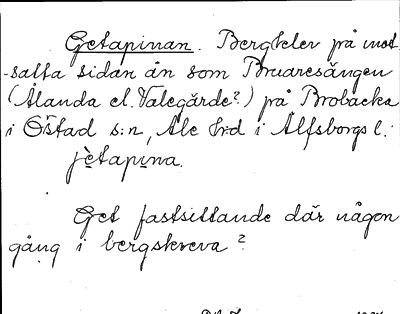 Getapinan. Bergklev på mot-
-satta sidan ån som Bruaresängen
(Ålanda el. Valegärde?) på Brobacka
i Östad s:n, Ale hd i Älfsborgs l.
jètapına.
Get fastsittande där någon
gång i bergskreva?